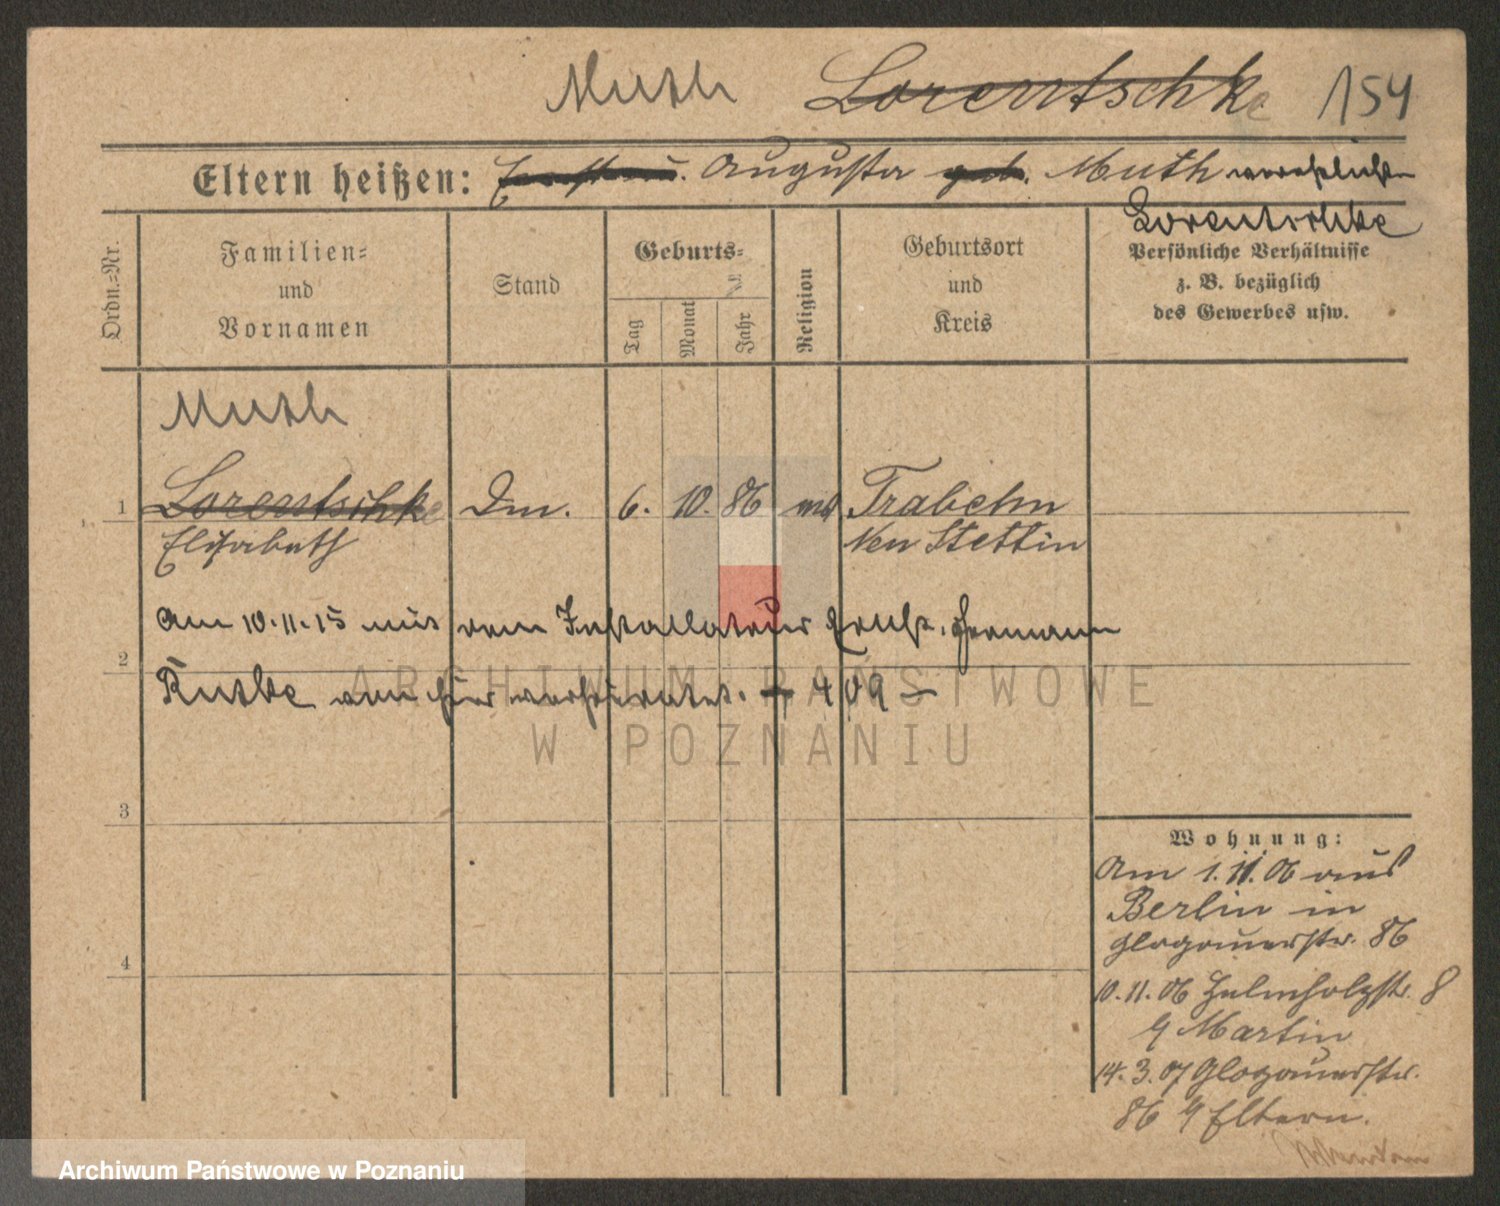 Muth Lorentschke 154
Eltern heißen: Augusta geb. Muth verehelichte
Lorentschke
Ordn.=Nr.
Familien=
und
Vornamen
Stand
Geburts=
Tag
Monat
Jahr
Religion
Geburtsort
und
Kreis
Persönliche Verhältnisse
z. B. bezüglich
des Gewerbes usw.
Muth
1 Lorentschke Dm. 6. 10. 86 Trabehn
Elisabeth Neu Stettin
Am 10.11.15 mit dem Installateur Ernst Hermann
2
Kuthe von hier verheiratet. 409
3
4
Wohnung:
Am 1.11.06 aus
Berlin in
Glogauerstr. 86
10.11.06 Helmholzstr. 8
Martin
14.3.07 Glogauerstr.
86 Eltern.
ARCHIWUM PAŃSTWOWE
W POZNANIU
Archiwum Państwowe w Poznaniu